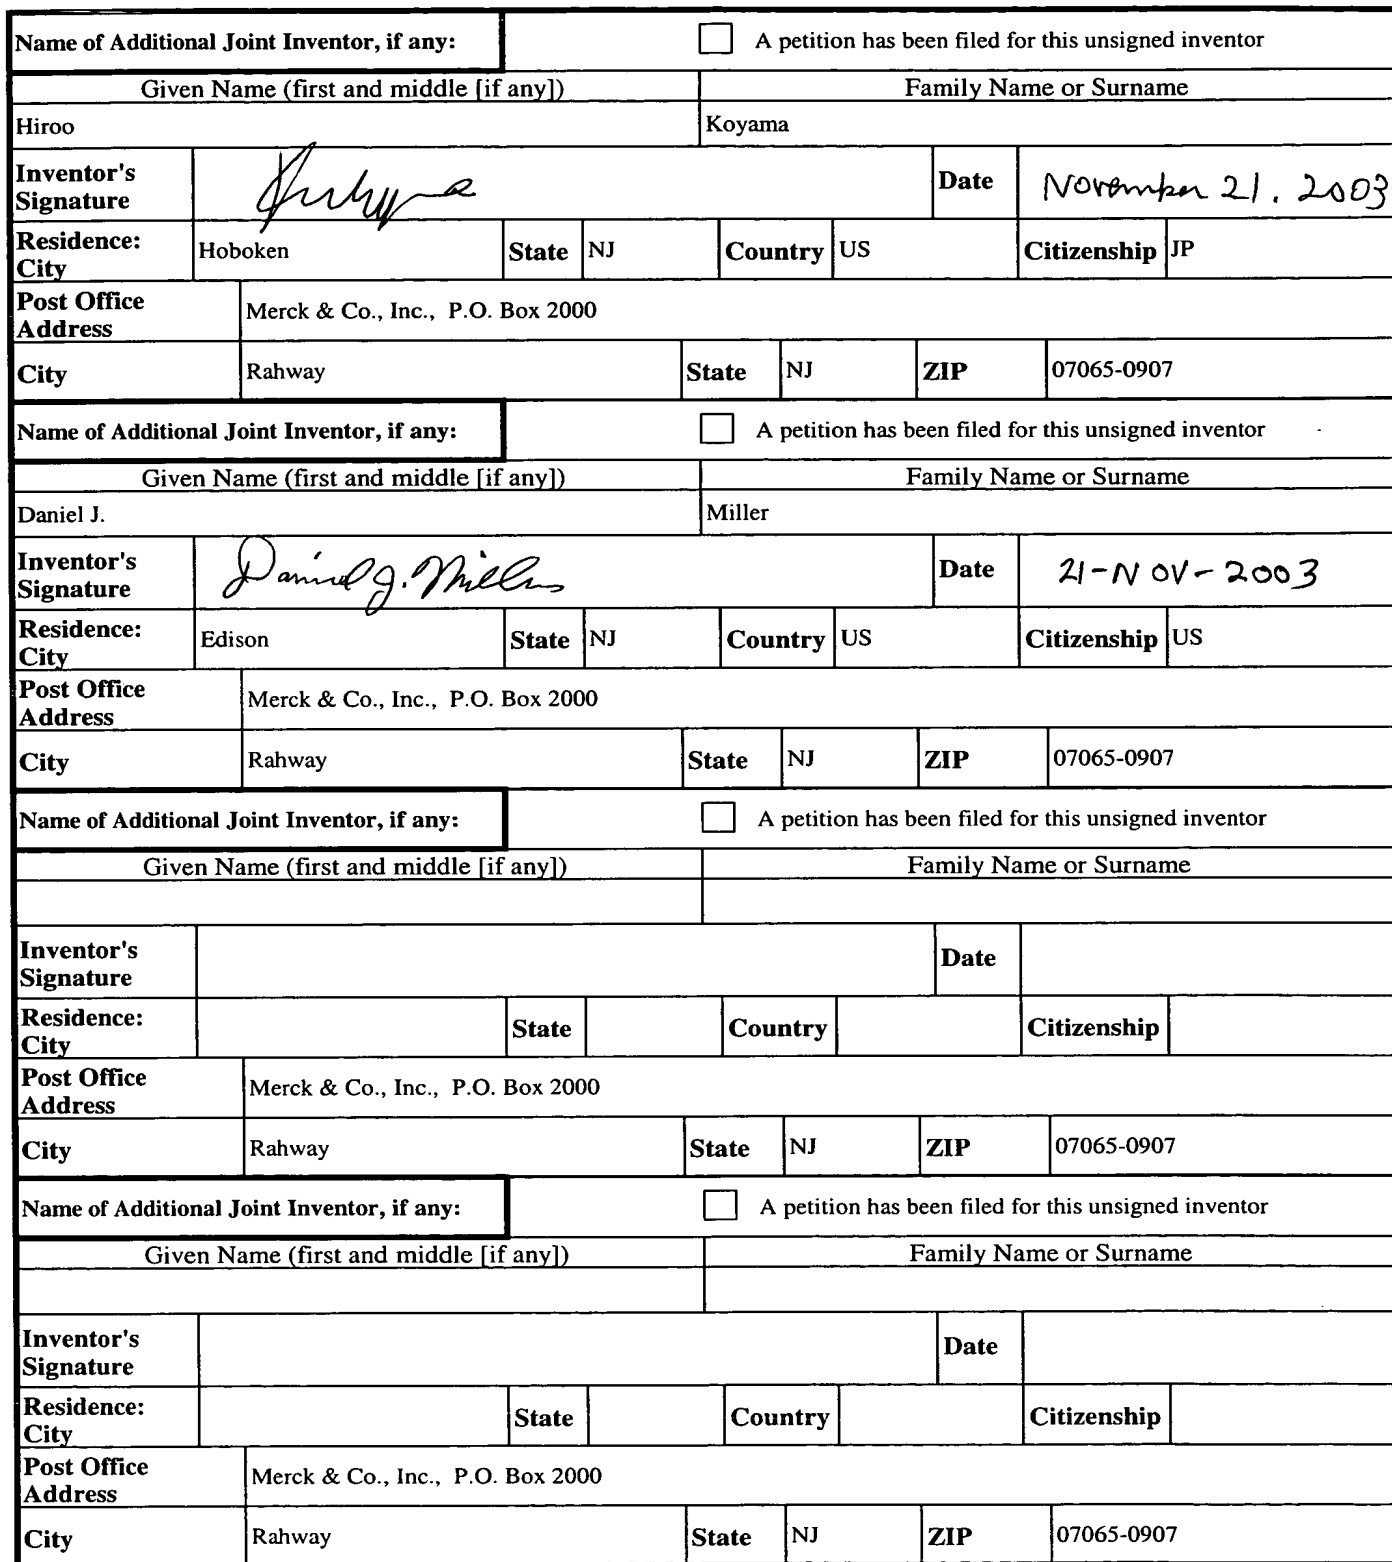 Name of Additional Joint Inventor, if any: A petition has been filed for this unsigned inventor
Given Name (first and middle [if any]) Family Name or Surname
Hiroo Koyama
Inventor's Signature Date November 21. 2003
Residence: City Hoboken State NJ Country US Citizenship JP
Post Office Address Merck & Co., Inc., P.O. Box 2000
City Rahway State NJ ZIP 07065-0907
Name of Additional Joint Inventor, if any: A petition has been filed for this unsigned inventor
Given Name (first and middle [if any]) Family Name or Surname
Daniel J. Miller
Inventor's Signature Daniel J. Miller Date 21-NOV-2003
Residence: City Edison State NJ Country US Citizenship US
Post Office Address Merck & Co., Inc., P.O. Box 2000
City Rahway State NJ ZIP 07065-0907
Name of Additional Joint Inventor, if any: A petition has been filed for this unsigned inventor
Given Name (first and middle [if any]) Family Name or Surname
Inventor's Signature Date
Residence: City State Country Citizenship
Post Office Address Merck & Co., Inc., P.O. Box 2000
City Rahway State NJ ZIP 07065-0907
Name of Additional Joint Inventor, if any: A petition has been filed for this unsigned inventor
Given Name (first and middle [if any]) Family Name or Surname
Inventor's Signature Date
Residence: City State Country Citizenship
Post Office Address Merck & Co., Inc., P.O. Box 2000
City Rahway State NJ ZIP 07065-0907